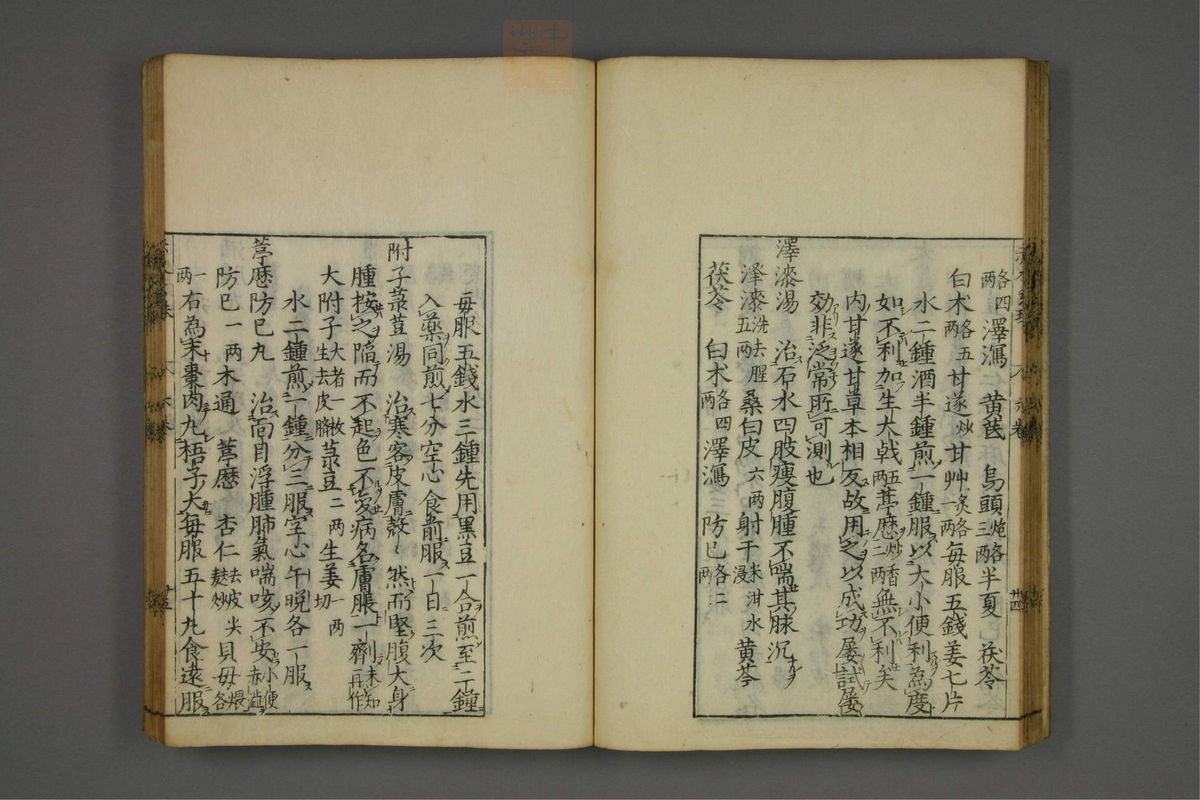 各四両澤瀉 黄芪 烏頭炮各三両半夏 茯苓
白术各五両甘遂炒甘艸炙各一両毎服五錢姜七片
水二鍾酒半鍾煎一鍾服以大小便利為度
如不利加生大戟五両葶藶炒二両香無不利矣
内甘遂甘草本相反故用之以成功屡試屡
効非泛常所可測也
澤漆湯 治石水四肢瘦腹腫不喘其脉沉
澤漆洗去腥五両桑白皮六両射干米泔水浸黄芩
茯苓 白术各四両澤瀉 防已各二両
毎服五錢水三鍾先用黒豆一合煎至二鍾
入藥同煎七分空心食前服一日三次
附子菉荳湯 治寒客皮膚殼〻然而堅腹大身
腫按之陷而不起色不變病名膚脹一劑未知再作
大附子大者一枚生去皮臍菉豆二両生姜一両切
水二鍾煎一鍾分三服空心午晩各一服
葶藶防已丸 治面目浮腫肺氣喘咳不安小便赤澁
防已一両木通 葶藶 杏仁去皮尖麸炒貝母煨各
一両右為末棗肉丸梧子大毎服五十丸食遠服